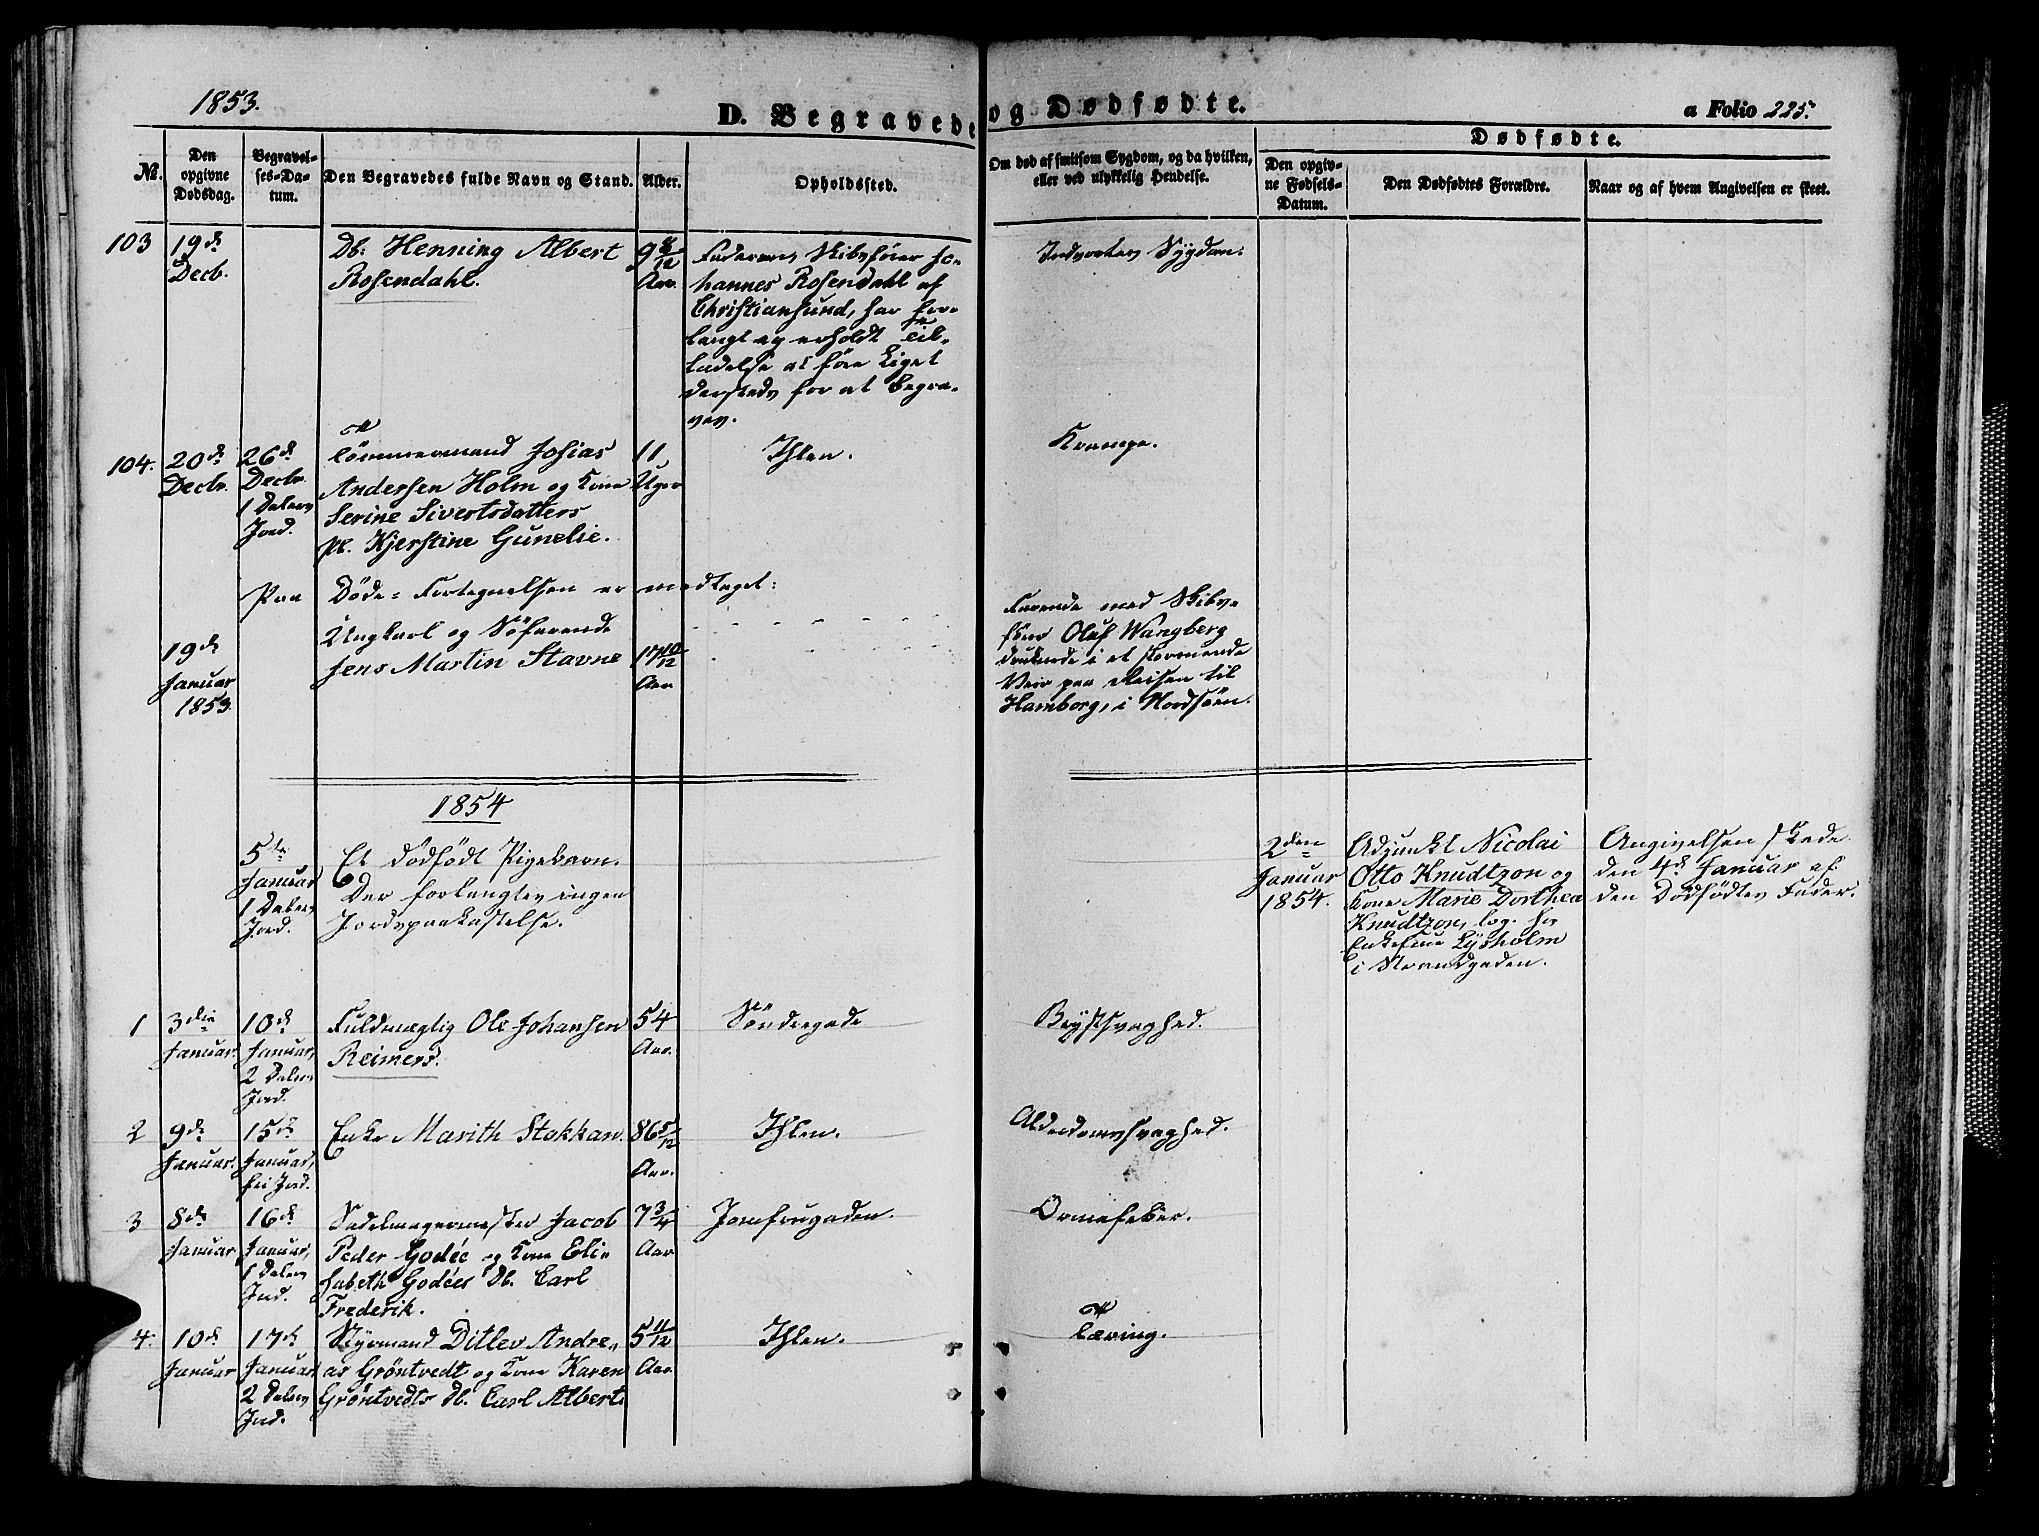 1853.
D. Begravede og Dødfødte.
a Folio 225.
No.
Den opgivne Dødsdag.
Begravelses-Datum.
Den Begravedes fulde Navn og Stand.
Alder.
Opholdssted.
Om død af smitsom Sygdom, og da hvilken, eller ved ulykkelig Hendelse.
Dødfødte.
Den opgivne Fødsels-Datum.
Den Dødfødtes Forældre.
Naar og af hvem Angivelsen er skeet.
103
19de
Decb.
Db. Henning Albert
Rosendahl.
9 8/12
Aar.
Faderen Skibsfører Jo-
hannes Rosendahl af
Christiansund, har for-
langt og erholdt Til-
ladelse at føre Liget
dersteds for at begra-
ves.
Indvortes Sygdom.
104.
20de
Decbr.
26de
Decbr.
1 Dalers
Jord.
Tömmermand Josias
Andersen Holm og Kone
Serine Sivertsdatters
Pb. Kjerstine Gunelie.
11
Uger
Ihlen.
Krampe.
Paa Döde-Fortegnelsen er medtaget:
19de
Januar
1853.
Ungkarl og Söfarende
Jens Martin Stavne
17 10/12
Aar
Farende med Skibs-
förer Oluf Wangberg
druknede i et stormende
Veir paa Reisen til
Hamborg, i Nordsöen.
1854
5te
Januar
1 Dalers
Jord.
Et dödfödt Pigebarn.
Der forlangtes ingen
Jordspaakastelse.
2den
Januar
1854.
Adjunkt Nicolai
Otto Knudtzon og
Kone Marie Dorthea
Knudtzon, log. hos
Enkefrue Lysholm
i Strandgaden.
Angivelsen skede
den 4de Januar af
den Dödfödtes Fader.
1
3die
Januar.
10de
Januar,
2 Dalers
Jord.
Fuldmægtig Ole Johansen
Reimers.
54
Aar.
Söndregade
Brystsvaghed.
2
9de
Januar.
15de
Januar,
fri Jord.
Enke Marith Stokkan.
86 5/12
Aar.
Ihlen.
Alderdomssvaghed.
3
8de
Januar
16de
Januar,
1 Dalers
Jord.
Sadelmagermester Jacob
Peder Godée og Kone Eli-
sabeth Godées Db. Carl
Frederik.
7 3/4
Aar
Jomfrugaden.
Ormefeber.
4.
10de
Januar
17de
Januar
2 Dalers
Jord.
Styrmand Ditlev Andre-
as Gröntvedt og Kone Karen
Gröntvedts Db. Carl Albert.
5 11/12
Aar.
Ihlen.
Tæring.